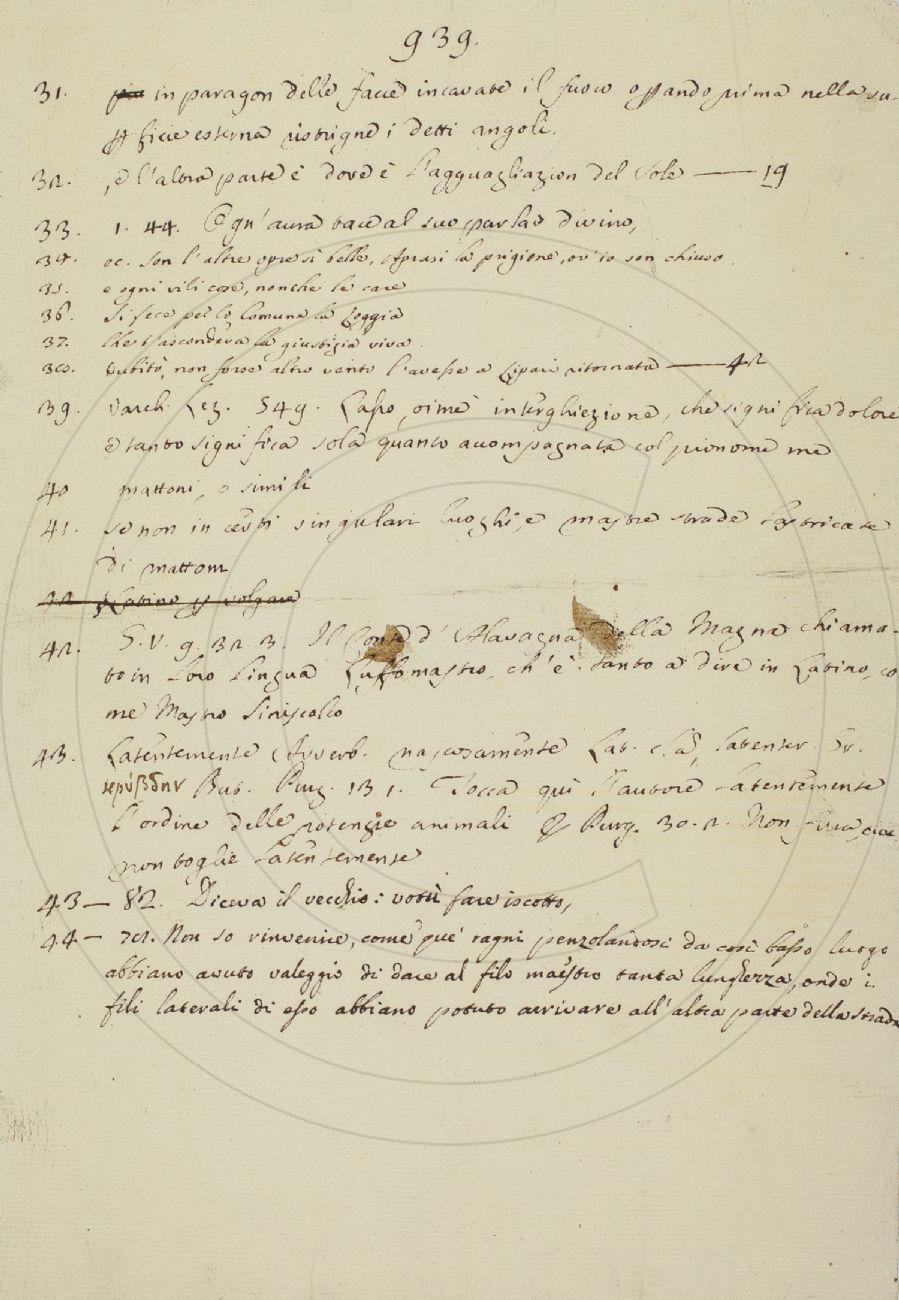 939.
31. in paragon delle facce incavate il fuoco operando prima nella su-
perficie esterna ristrigne i detti angoli.
32. , e l'altra parte è dove è l'agguagliazion del Sole — 19
33. 1. 44. Ogn' aura tace al suo parlar divino,
34. ec. Son l'altre opre sì belle, Aprasi la prigione, ov' io son chiuso.
35. e ogni vili cose, nonche le care
36. Si fece per lo Comune la Loggia
37. Che t'ascondeva la giustizia viva.
38. Subito, non forse altro vento l'avesse a Lipari ritornata — 42
39. Varch. Lez. 549. Lasso, oimè interghiezione, che significa dolore
e tanto significa sola quanto accompagnata col pronome me
40 mattoni, o simili
41. se non in certi singulari luoghi, e mastre strade lastricate
di mattoni
42. Latino e volgare
42. G. V. 9. 323. Il Conte d' Alavagna della Magna chiama-
to in loro lingua Luffomastro, ch' è tanto a dire in Latino, co
me Mastro Siniscalco
43. Latentemente Avverb. nascosamente Lat. clã, latenter. Gr.
κρύβδην But. Purg. 13. 1. Tocca quì l'autore latentemente
l'ordine delle potenzie animali & Purg. 30. 2. Non fura, cioè
non toglie latentemente
43 — 82. Diceva il vecchio: votù fare iscotto,
44 — 72. Non so rinvenire, come que' ragni penzolandosi da così basso luogo
abbiano avuto valeggio di dare al filo maestro tanta lunghezza, onde i
fili laterali di esso abbiano potuto arrivare all' altra parte della strada